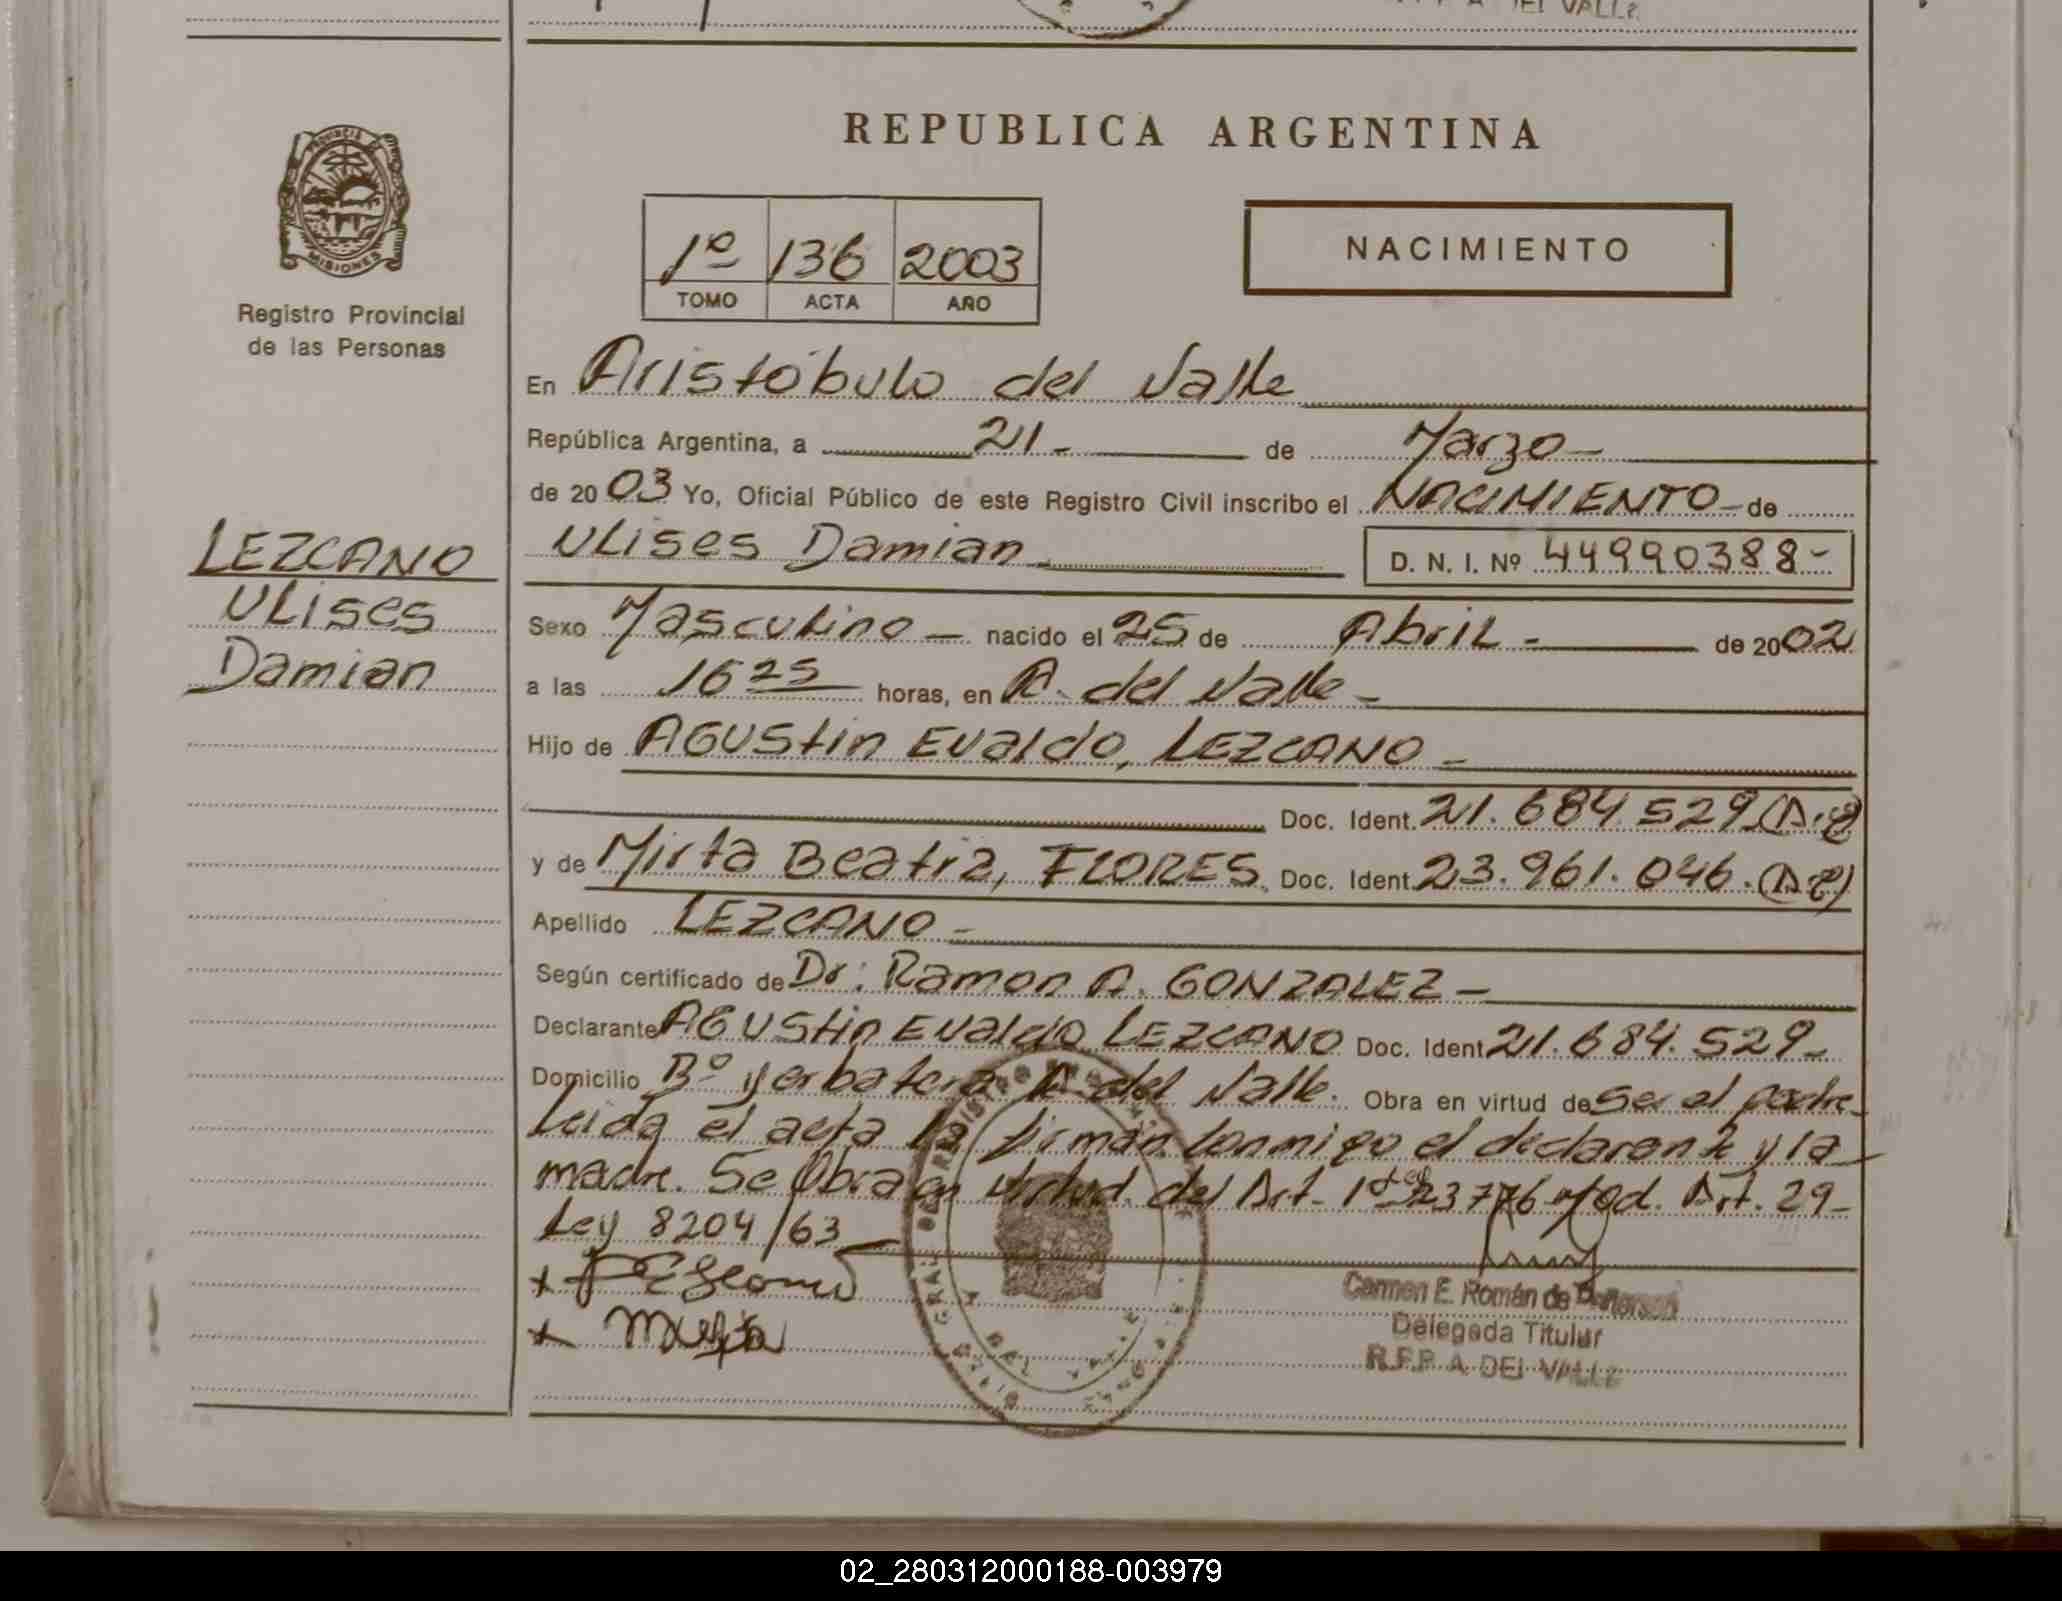 A DEL VALLE
REPUBLICA ARGENTINA
PROVINCIA DE
MISIONES
Registro Provincial
de las Personas
1º 136 2003
TOMO ACTA AÑO
NACIMIENTO
En Aristóbulo del Valle
República Argentina, a 21 - de Marzo -
de 2003 Yo, Oficial Público de este Registro Civil inscribo el NACIMIENTO - de
LEZCANO
Ulises
Damian
Ulises Damian - D. N. I. Nº 44990388-
Sexo Masculino - nacido el 25 de Abril - de 2002
a las 16 25 horas, en A. del Valle -
Hijo de AGUStin Evaldo, LEZCANO -
Doc. Ident. 21.684.529 (A.r)
y de Mirta Beatriz, FLORES. Doc. Ident. 23.961.046. (A.r)
Apellido LEZCANO -
Según certificado de Dr: Ramon A. GONZALEZ -
Declarante AGUStin Evaldo LEZCANO Doc. Ident 21.684.529 -
Domicilio Bº yerbatero A del Valle. Obra en virtud de ser el padre -
Leida el acta la firman conmigo el declarante y la
madre. Se Obra en virtud del Art. 1º 23776 Mod. Art. 29 -
Ley 8204/63
Carmen E. Román de
Delegada Titular
R.P.P. A. DEL VALLE
02_280312000188-003979